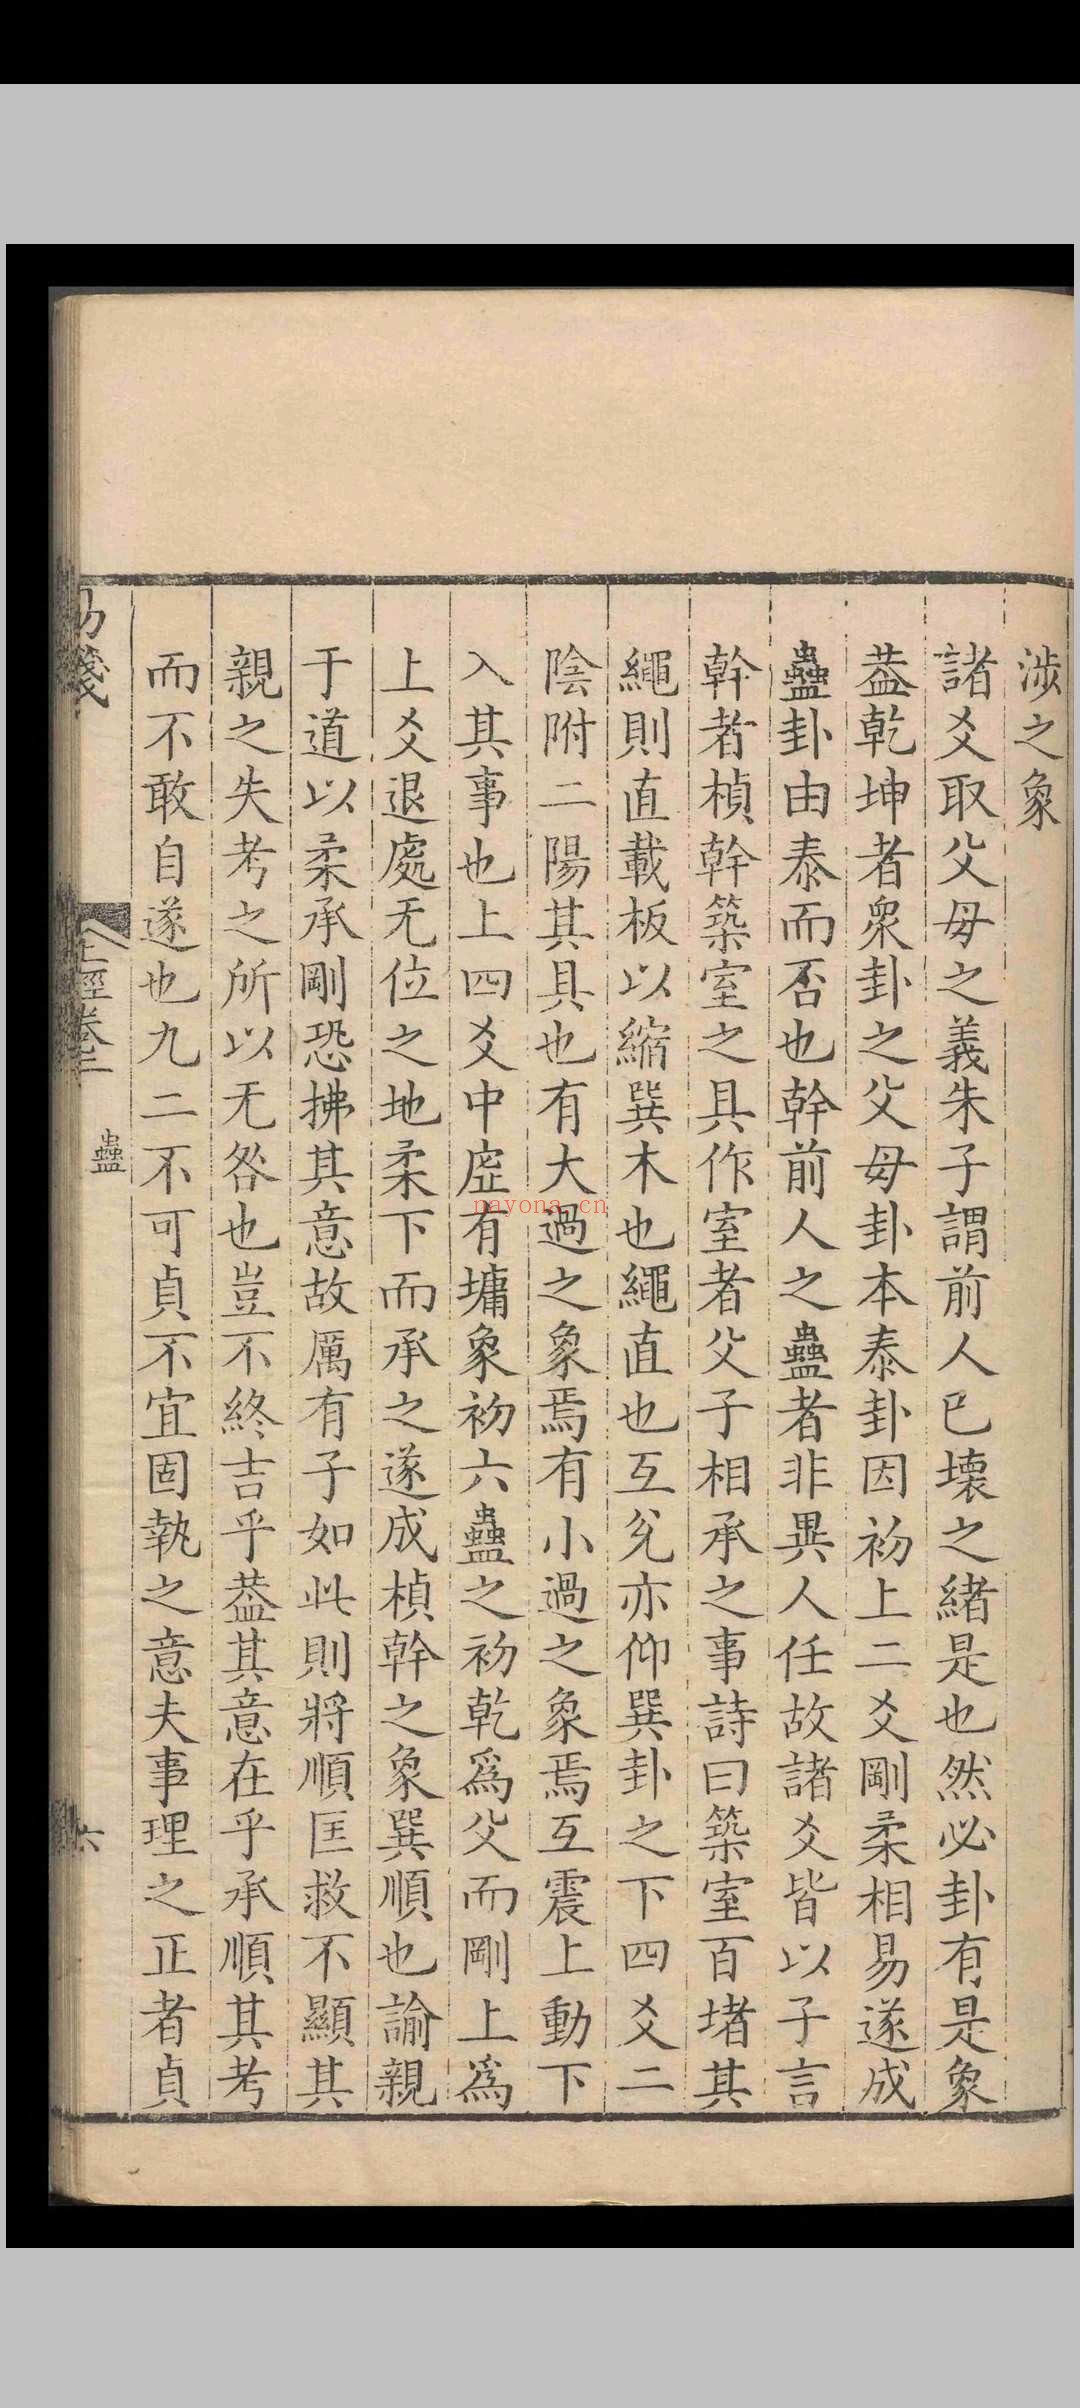 涉之象
諸爻取父母之義朱子謂前人已壞之緒是也然必卦有是象
葢乾坤者衆卦之父母卦本泰卦因初上二爻剛柔相易遂成
蠱卦由泰而否也幹前人之蠱者非異人任故諸爻皆以子言
幹者楨幹築室之具作室者父子相承之事詩曰築室百堵其
繩則直載板以縮巽木也繩直也互兊亦仰巽卦之下四爻二
陰附二陽其具也有大過之象焉有小過之象焉互震上動下
入其事也上四爻中虛有墉象初六蠱之初乾爲父而剛上爲
上爻退處无位之地柔下而承之遂成楨幹之象巽順也諭親
于道以柔承剛恐拂其意故厲有子如此則將順匡救不顯其
親之失考之所以无咎也豈不終吉乎葢其意在乎承順其考
而不敢自遂也九二不可貞不宜固執之意夫事理之正者貞
易箋
上經卷二
蠱
六
nayona.cn